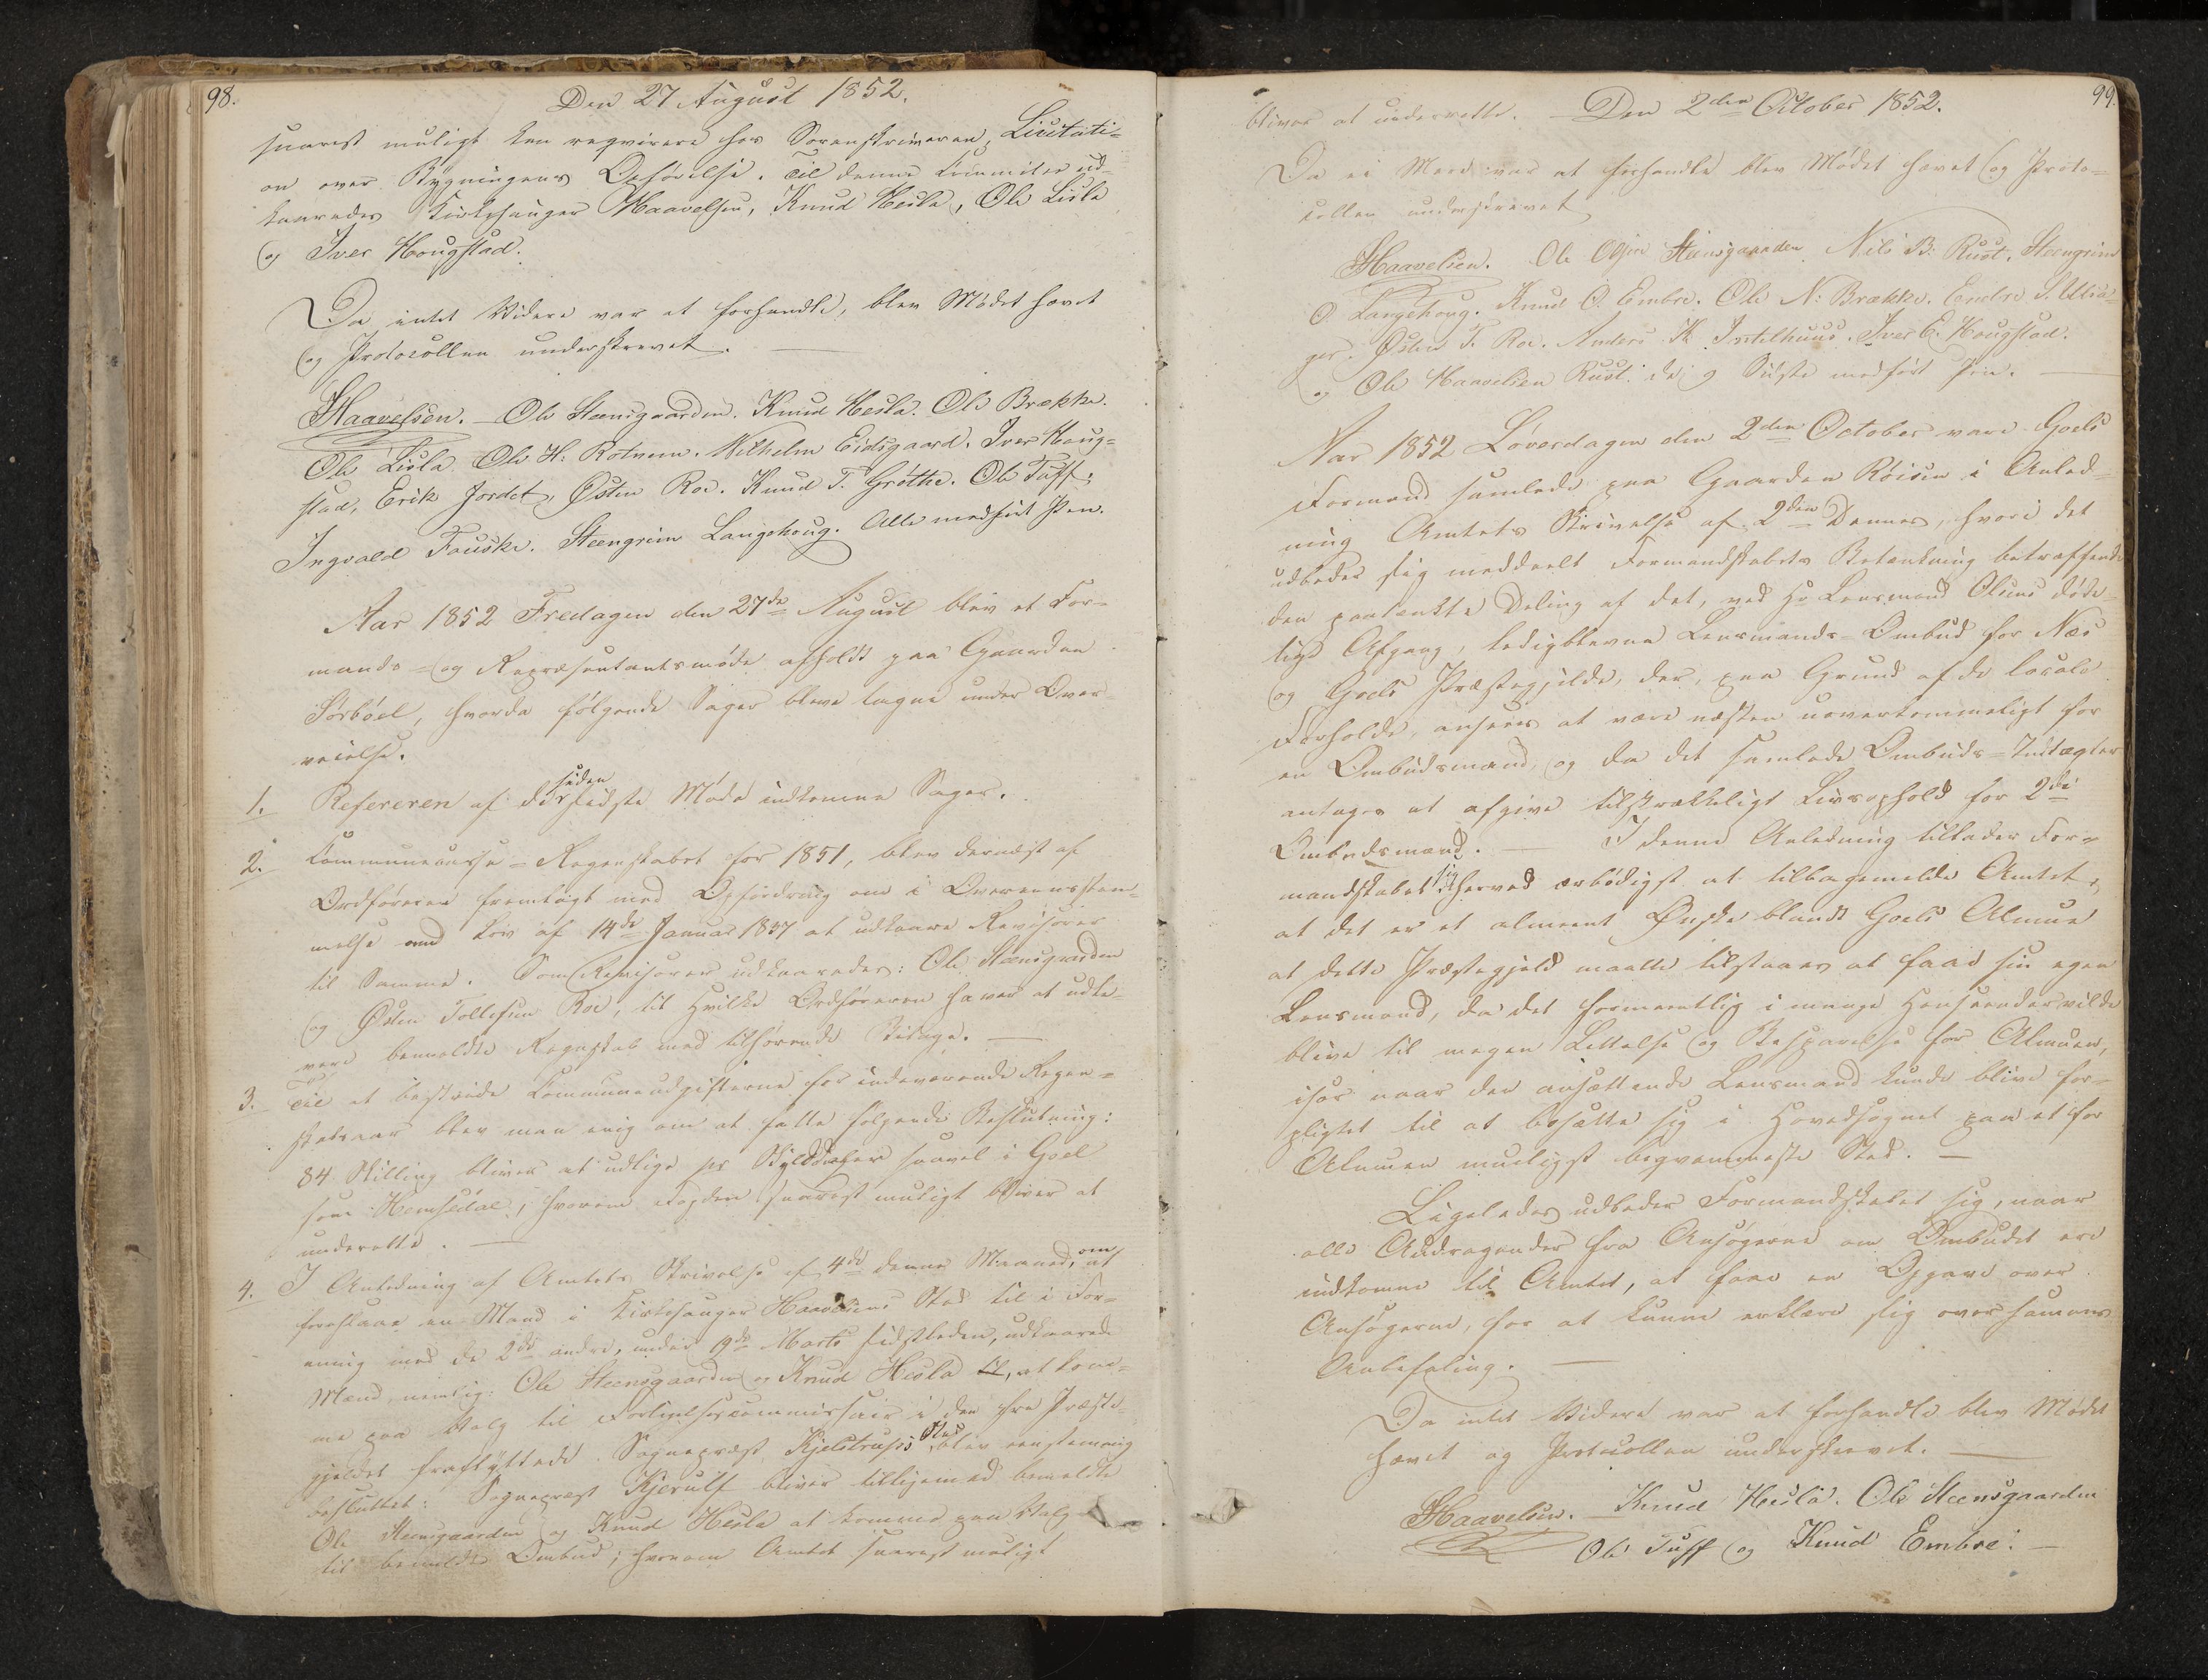 98.
Den 27 August 1852.
snarest muligt kan reqvirere hos Sorenskriveren, Licitati-
on over Bygningens Opførelse. Til denne Committee ud-
kaaredes Kirkesanger Haavelsen, Knud Hesla, Ole Lisla
og Iver Hougstad.
Da intet Videre var at forhandle, blev Mødet hævet
og Protocollen underskrevet.
Haavelsen. Ole Steensgaarden. Knud Hesla. Ole Brække.
Ole Lisla. Ole H. Rotneim. Wilhelm Eidsgaard. Iver Houg-
stad, Erik Jordet, Østen Roe. Knud T. Grøthe. Ole Tuff.
Ingvald Fauske. Steengrim Langehoug. Alle med ført Pen.
Aar 1852 Fredagen den 27de August blev et For-
mands- og Repræsentantsmøde afholdt paa Gaarden
Sørbøel, hvorda følgende Sager bleve tagne under Over-
veielse.
1. Refereren af de siden sidste Møde indkomne Sager.
2. Communecasse-Regnskabet for 1851, blev dernæst af
Ordføreren fremlagt med Opfordring om i Overeensstem-
melse med Lov af 14de Januar 1837 at udkaare Revisorer
til Samme. Som Revisorer udkaaredes: Ole Steensgaarden
og Østen Tollefsen Roe, til hvilke Ordføreren haver at udle-
vere bemeldte Regnskab med tilhørende Bilage.
3. Til at bestride Communeudgifterne for indeværende Regn-
skabsaar blev man enig om at fatte følgende Beslutning:
84 Skilling bliver at udligne pr Skylddaler saavel i Goel
som Hemsedal, hvorom Fogden snarest muligt bliver at
underrette.
4. I Anledning af Amtets Skrivelse af 4de denne Maaned, om at
foreslaae en Mand i Kirkesanger Haavelsens Sted til i For-
ening med de 2de andre, under 9de Marts sidstleden, udkaarede
Mænd, nemlig: Ole Steensgaarden og Knud Hesla til, at kom-
me paa Valg til Forligelsescommissair i den fra Præste-
gjeldet fraflyttede Sognepræst Kjelstrups Sted blev eenstemmig
besluttet: Sognepræst Kjerulf bliver tilligemed bemeldte
Ole Steensgaarden og Knud Hesla at komme paa Valg
til bemeldte Ombud; hvorom Amtet snarest muligt
99.
bliver at underrette. Den 2den October 1852.
Da ei Meere var at forhandle blev Mødet hævet og Proto-
collen underskrevet
Haavelsen. Ole Olsen Steensgaarden. Nils B. Rust. Steengrim
O. Langehoug. Knud O. Embre. Ole N. Brække. Endre S. Ulsa-
ger. Østen T. Roe. Anders K. Instelhuus. Iver E. Hougstad.
og Ole Haavelsen Rust. de 9 Sidste med ført Pen.
Aar 1852 Løverdagen den 2den October vare Goels
Formænd samlede paa Gaarden Røisen i Anled-
ning Amtets Skrivelse af 2den Dennes, hvori det
udbeder sig meddeelt Formandskabets Betænkning betræffende
den paatænkte Deling af det, ved Hr Lensmand Olsens døde-
lige Afgang, ledigblevne Lensmands-Ombud for Næs
og Goels Præstegjelde, der, paa Grund af de locale
Forholde, ansees at være næsten uoverkommeligt for
en Ombudsmand, og da det samlede Ombuds-Indtægter
antages at afgive tilstrækkeligt Livsophold for 2de
Ombudsmænd. I denne Anledning tillader For-
mandskabet sig herved ærbødigst at tilbagemelde Amtet,
at det er et almeent Ønske blandt Goels Almue
at dette Præstegjeld maatte tilstaaes at faae sin egen
Lensmand, da det formeentlig i mange Henseender vilde
blive til megen Lettelse og Besparelse for Almuen,
især naar den ansættende Lensmand kunde blive for-
pligtet til at bosætte sig i Hovedsognet paa et for
Almuen mueligst beqvemmeste Sted.
Ligeledes udbeder Formandskabet sig, naar
alle Andragender fra Ansøgerne om Ombudet ere
indkomne til Amtet, at faae en Opgave over
Ansøgerne, for at kunne erklære sig over sammes
Anbefaling.
Da intet Videre var at forhandle blev Mødet
hævet og Protocollen underskrevet.
Haavelsen. Knud Heslà. Ole Steensgaarden
Ole Tuff og Knud Embre.